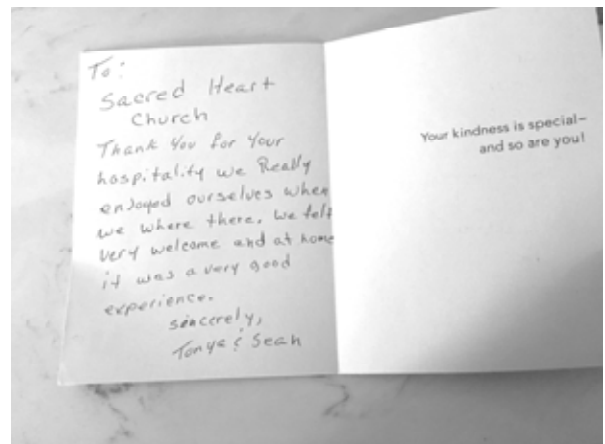 To:
Sacred Heart
Church
Thank You for Your
hospitality we Really
enjoyed ourselves when
we where there. We felt
very welcome and at home
it was a very good
experience.
sincerely,
Tonya & Sean
Your kindness is special–
and so are you!